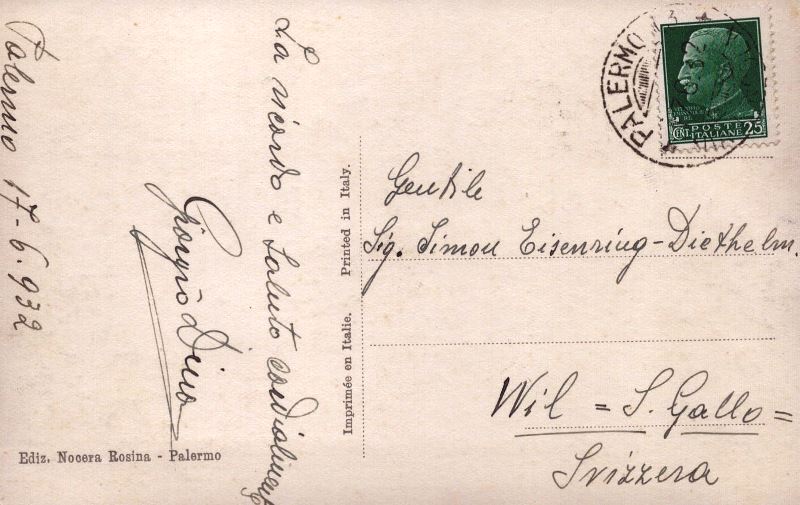 Palermo 17-6.932
La ricordo e saluto cordialmente
Giorgio Dino
Ediz. Nocera Rosina - Palermo
Imprimée en Italie. Printed in Italy.
PALERMO
POSTE ITALIANE
CENT. 25
Gentile
Sig. Simon Eisenring-Diethelm.
Wil = S. Gallo =
Svizzera